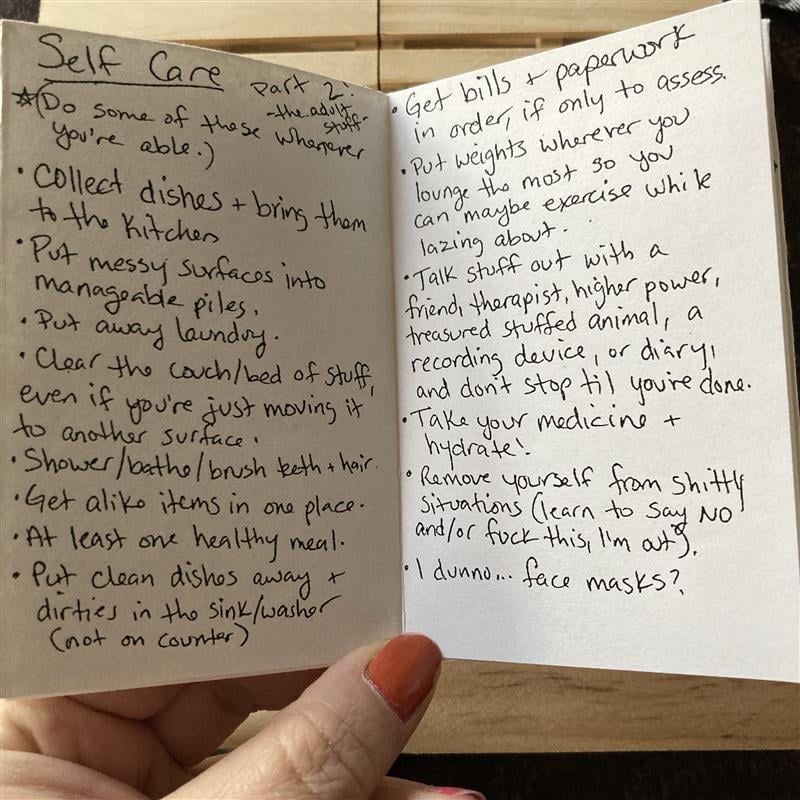 Self Care Part 2:
-the adult
stuff-
☆(Do some of these whenever
you're able.)
• Collect dishes + bring them
to the kitchen
• Put messy surfaces into
manageable piles.
• Put away laundry.
• Clear the couch/bed of stuff,
even if you're just moving it
to another surface.
• Shower/bathe/brush teeth + hair.
• Get alike items in one place.
• At least one healthy meal.
• Put clean dishes away +
dirties in the sink/washer
(not on counter)
• Get bills + paperwork
in order, if only to assess.
• Put weights wherever you
lounge the most so you
can maybe exercise while
lazing about.
• Talk stuff out with a
friend, therapist, higher power,
treasured stuffed animal, a
recording device, or diary,
and don't stop til you're done.
• Take your medicine +
hydrate!
• Remove yourself from shitty
situations (learn to say NO
and/or fuck this, I'm out).
• I dunno... face masks?